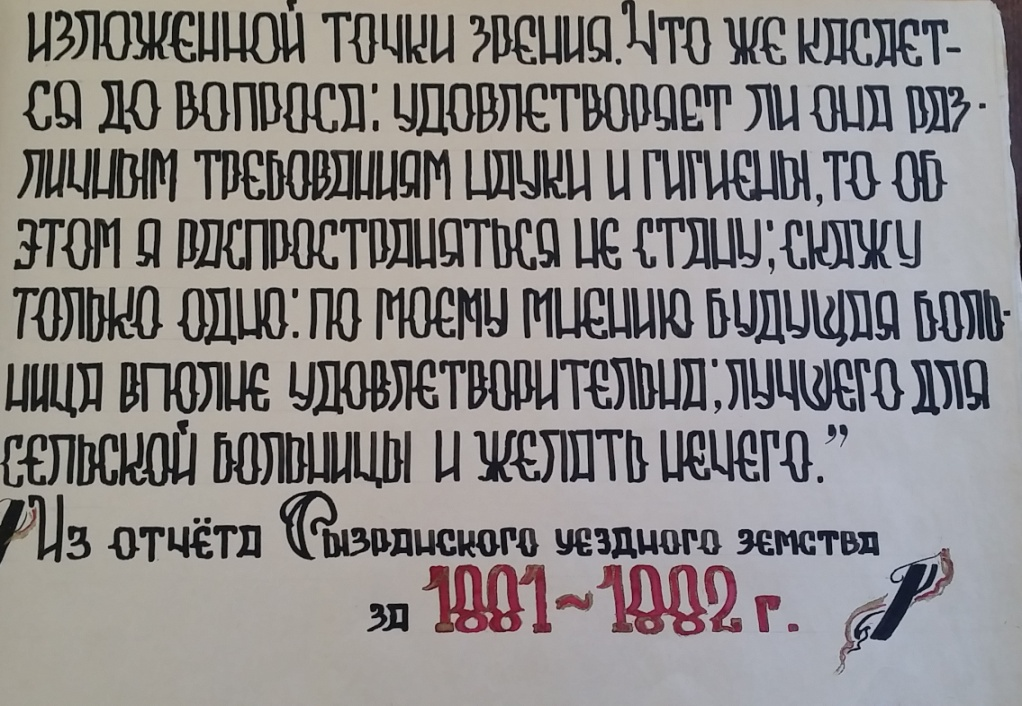 изложенной точки зрения. Что же касает-
ся до вопроса: удовлетворяет ли она раз-
личным требованиям науки и гигиены, то об
этом я распространяться не стану; скажу
только одно: по моему мнению будущая боль-
ница вполне удовлетворительна; лучшего для
сельской больницы и желать нечего.”
Из отчёта Сызранского уездного земства
за 1881~1882 г.